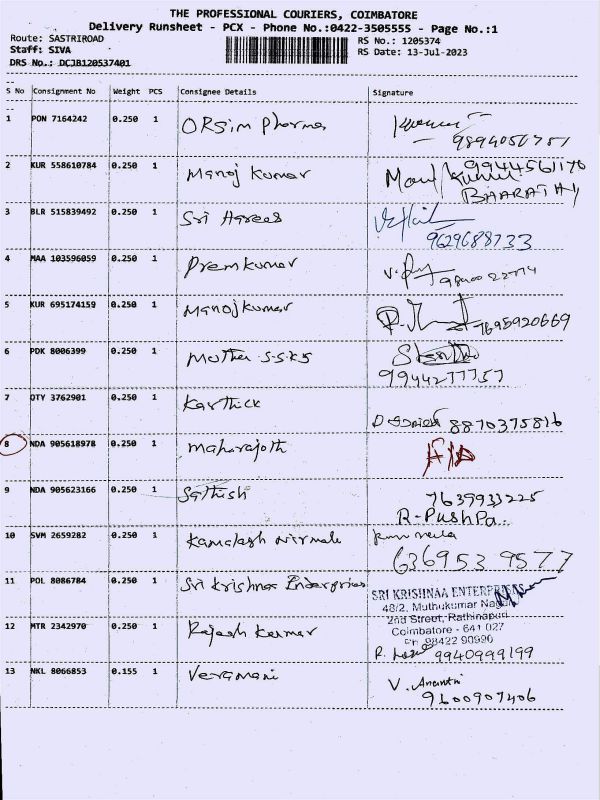 THE PROFESSIONAL COURIERS, COIMBATORE
Delivery Runsheet - PCX - Phone No.:0422-3505555 - Page No.:1
Route: SASTRIROAD
RS No.: 1205374
Staff: SIVA
RS Date: 13-Jul-2023
DRS No.: DCJB120537401
S No Consignment No Weight PCS Consignee Details Signature
1 PON 7164242 0.250 1 ORSim Pharma
9894056751
2 KUR 558610784 0.250 1 Manoj Kumar 9944561170
BHARATHY
3 BLR 515839492 0.250 1 Sri
9629688733
4 MAA 103596059 0.250 1 Premkumar
5 KUR 695174159 0.250 1 Manojkumar 7695920669
6 PDK 8006399 0.250 1 Mother S.S.K.S
9944277757
7 QTY 3762901 0.250 1 Karthick
8870375816
8 NDA 905618978 0.250 1
9 NDA 905623166 0.250 1 Sathish 7639933225
R-PushPa.
10 SVM 2659282 0.250 1 Kamalesh Nirmala
636953 9577
11 POL 8086784 0.250 1 Sri Krishna Enterprises SRI KRISHNAA ENTERPRISES
48/2, Muthukumar Nagar
2nd Street, Rathinapuri
12 MTR 2342970 0.250 1 Rajesh Kumar Coimbatore - 641 027
Ph: 98422 90990
R. 9940999199
13 NKL 8066853 0.155 1 Veramani V. Ananthi
9600907406